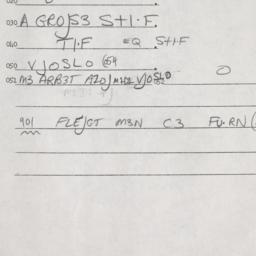 030 A GROJS3 S+I.F.
040 T I.F EQ S+I.F
050 VJOSLO 64
052 M3 ARB3T A20J VJOSLO
901 FLEJGT M3N C3 FU.RN(